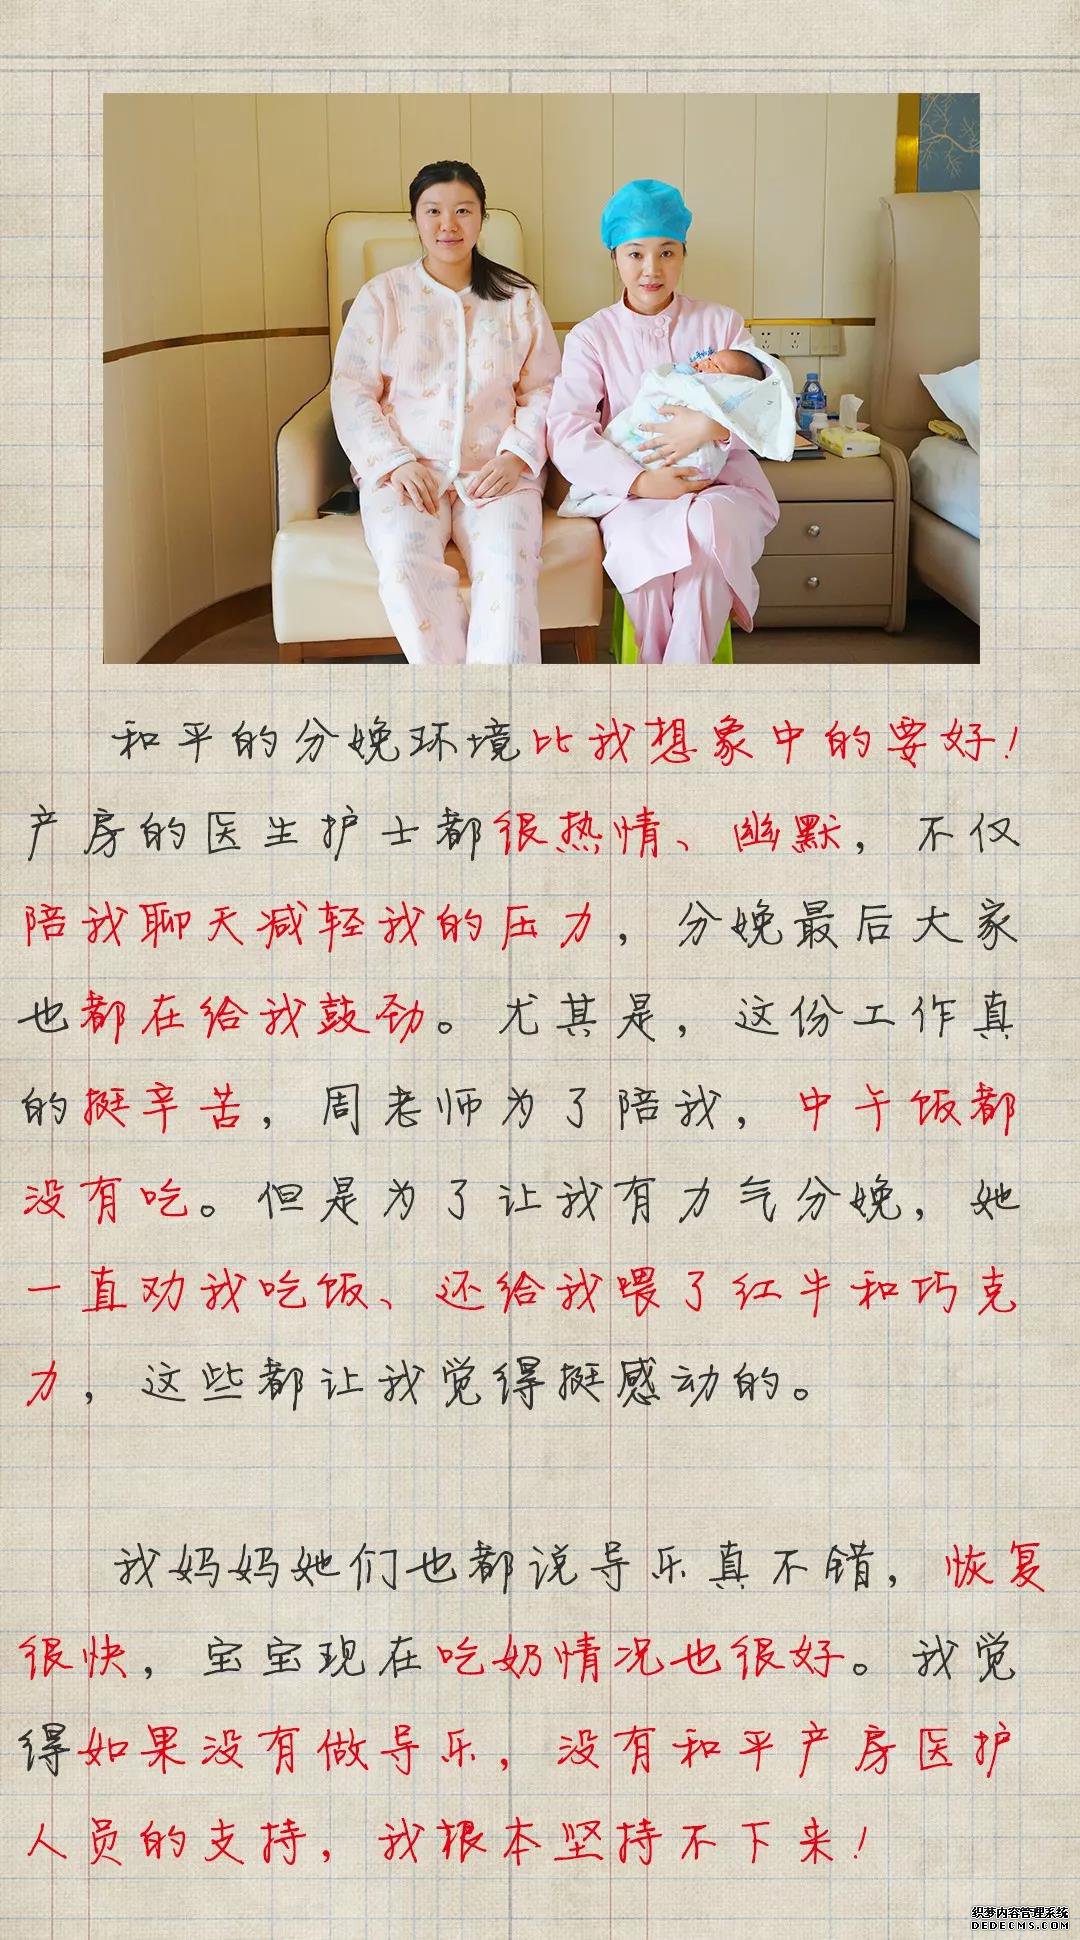 和平的分娩环境比我想象中的要好！
产房的医生护士都很热情、幽默，不仅
陪我聊天减轻我的压力，分娩最后大家
也都在给我鼓劲。尤其是，这份工作真
的挺辛苦，周老师为了陪我，中午饭都
没有吃。但是为了让我有力气分娩，她
一直劝我吃饭、还给我喂了红牛和巧克
力，这些都让我觉得挺感动的。
我妈妈她们也都说导乐真不错，恢复
很快，宝宝现在吃奶情况也很好。我觉
得如果没有做导乐，没有和平产房医护
人员的支持，我根本坚持不下来！
织梦内容管理系统
DEDECMS.COM